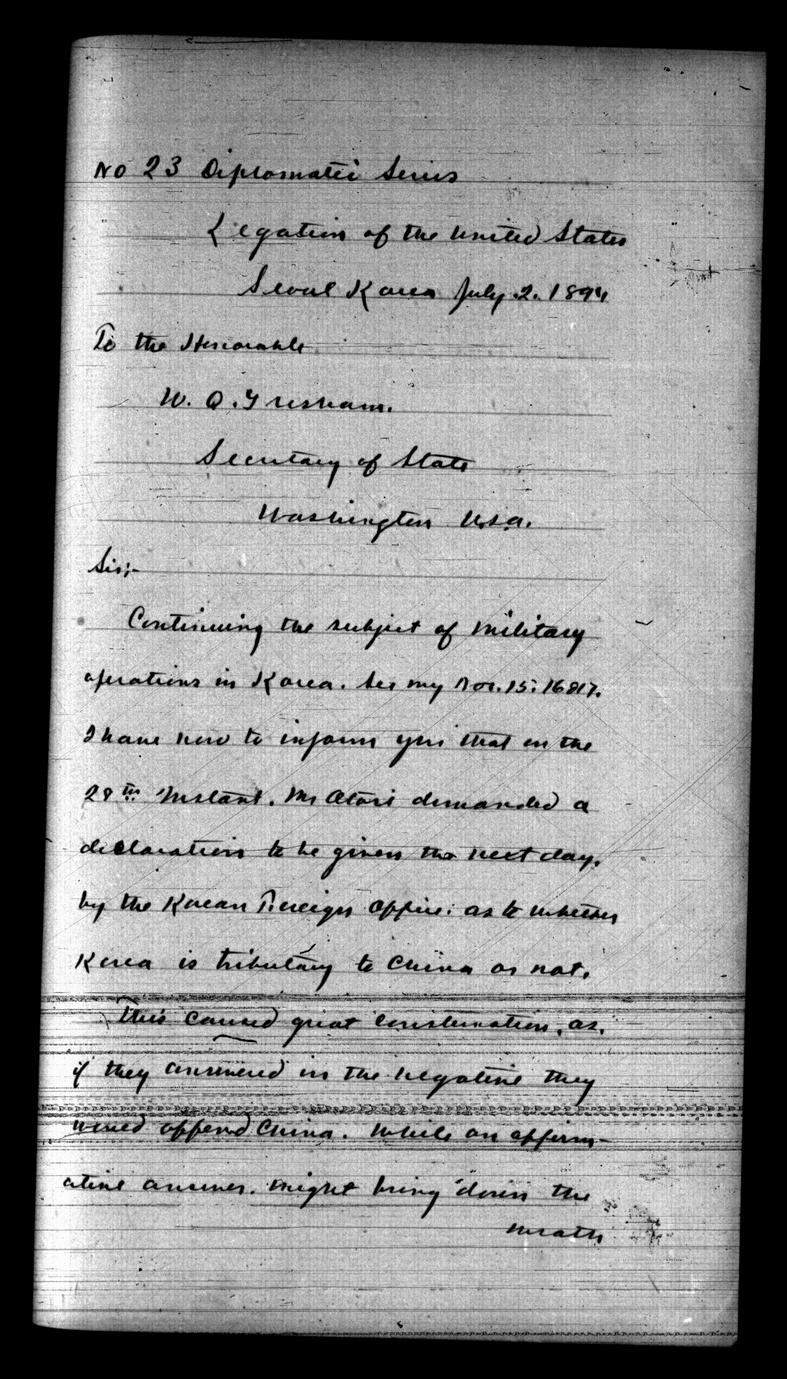 No 23 Diplomatic Series
Legation of the United States
Seoul Korea July 2. 1894
To the Honorable
W. Q. Gresham.
Secretary of State
Washington U.S.A.
Sir:-
Continuing the subject of military
operations in Korea. See my Nos. 15, 16 &17.
I have now to inform you that on the
28th Instant. Mr Otori demanded a
declaration to be given the next day.
by the Korean Foreign Office: as to whether
Korea is tributary to China or not.
This caused great consternation, as.
if they answered in the negative they
would offend China. While an affirm-
ative answer. might bring down the
wrath